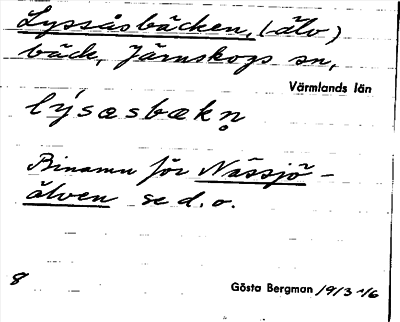 Lyssåsbäcken, (älv)
bäck, Järnskogs sn,
Värmlands län
lýsæsbækn̥
Binamn för Nässjö-
älven se d. o.
8
Gösta Bergman 1913